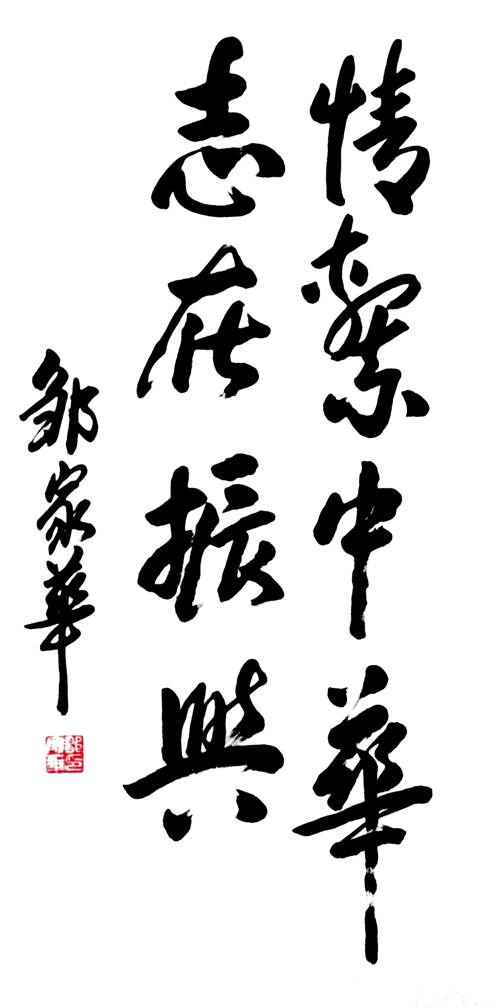 情繫中華
志在振興
邹家華